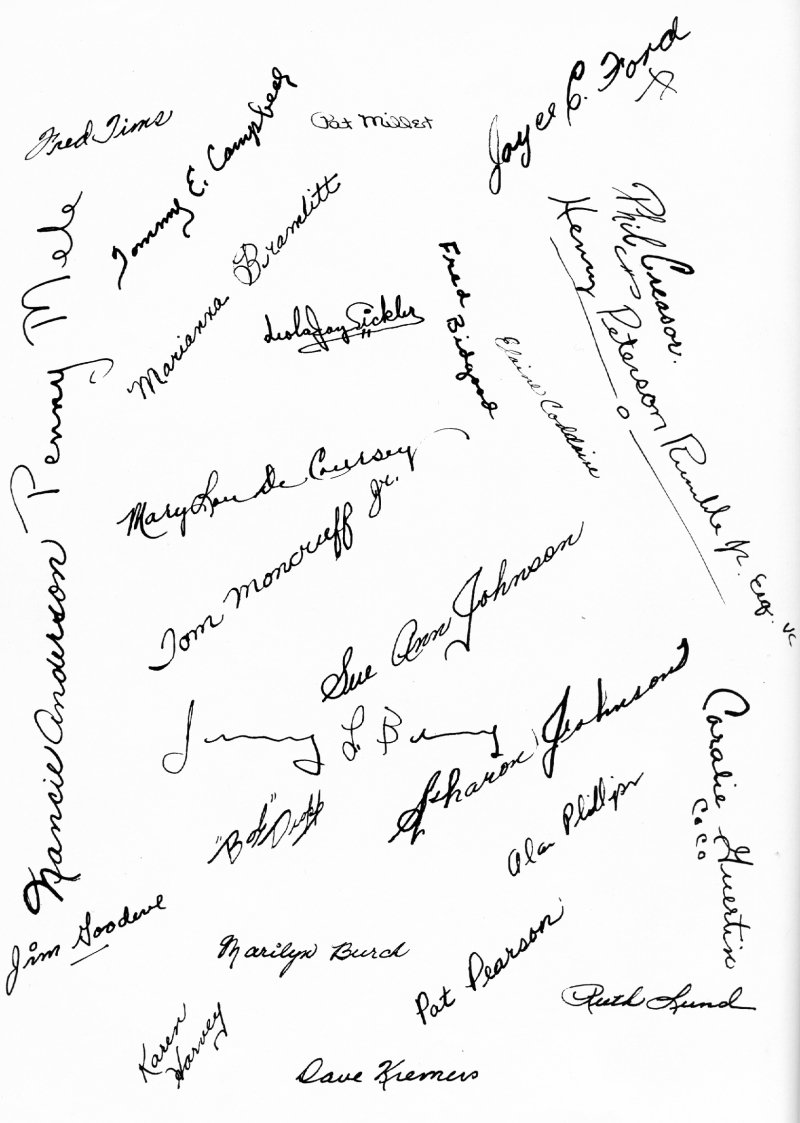 Joyce C. Ford
Fred Tims
Tommy E. Campbell
Pat Miller
Phil Creasor.
Henry Peterson Rumble Jr. Esq.
Penny Mele
Marianna Bramlitt
Leola Joy Sickler
Fred Bidgood
Elaine
Mary Lou De Coursey
Tom Moncrieff Jr.
Sue Ann Johnson
Nancie Anderson
L. B
Sharon Johnson
Coralie Guertin
CoCo
"Bob"
Alan Phillips
Jim Goodeve
Marilyn Burch
Pat Pearson
Ruth Lund
Karen
Harvey
Dave Kremers